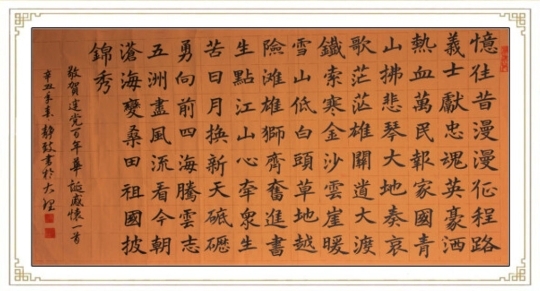 憶往昔漫漫征程路
義士獻忠魂英豪洒
熱血萬民報家國青
山拂悲琴大地奏哀
歌茫茫雄關道大渡
鐵索寒金沙雲崖暖
雪山低白頭草地越
險滩雄獅齊奮進書
生點江山心牽衆生
苦日月換新天砥礪
勇向前四海騰雲志
五洲盡風流看今朝
滄海變桑田祖國披
錦秀
敬賀建党百年華誕感懷一首
辛丑年春靜
書於大理